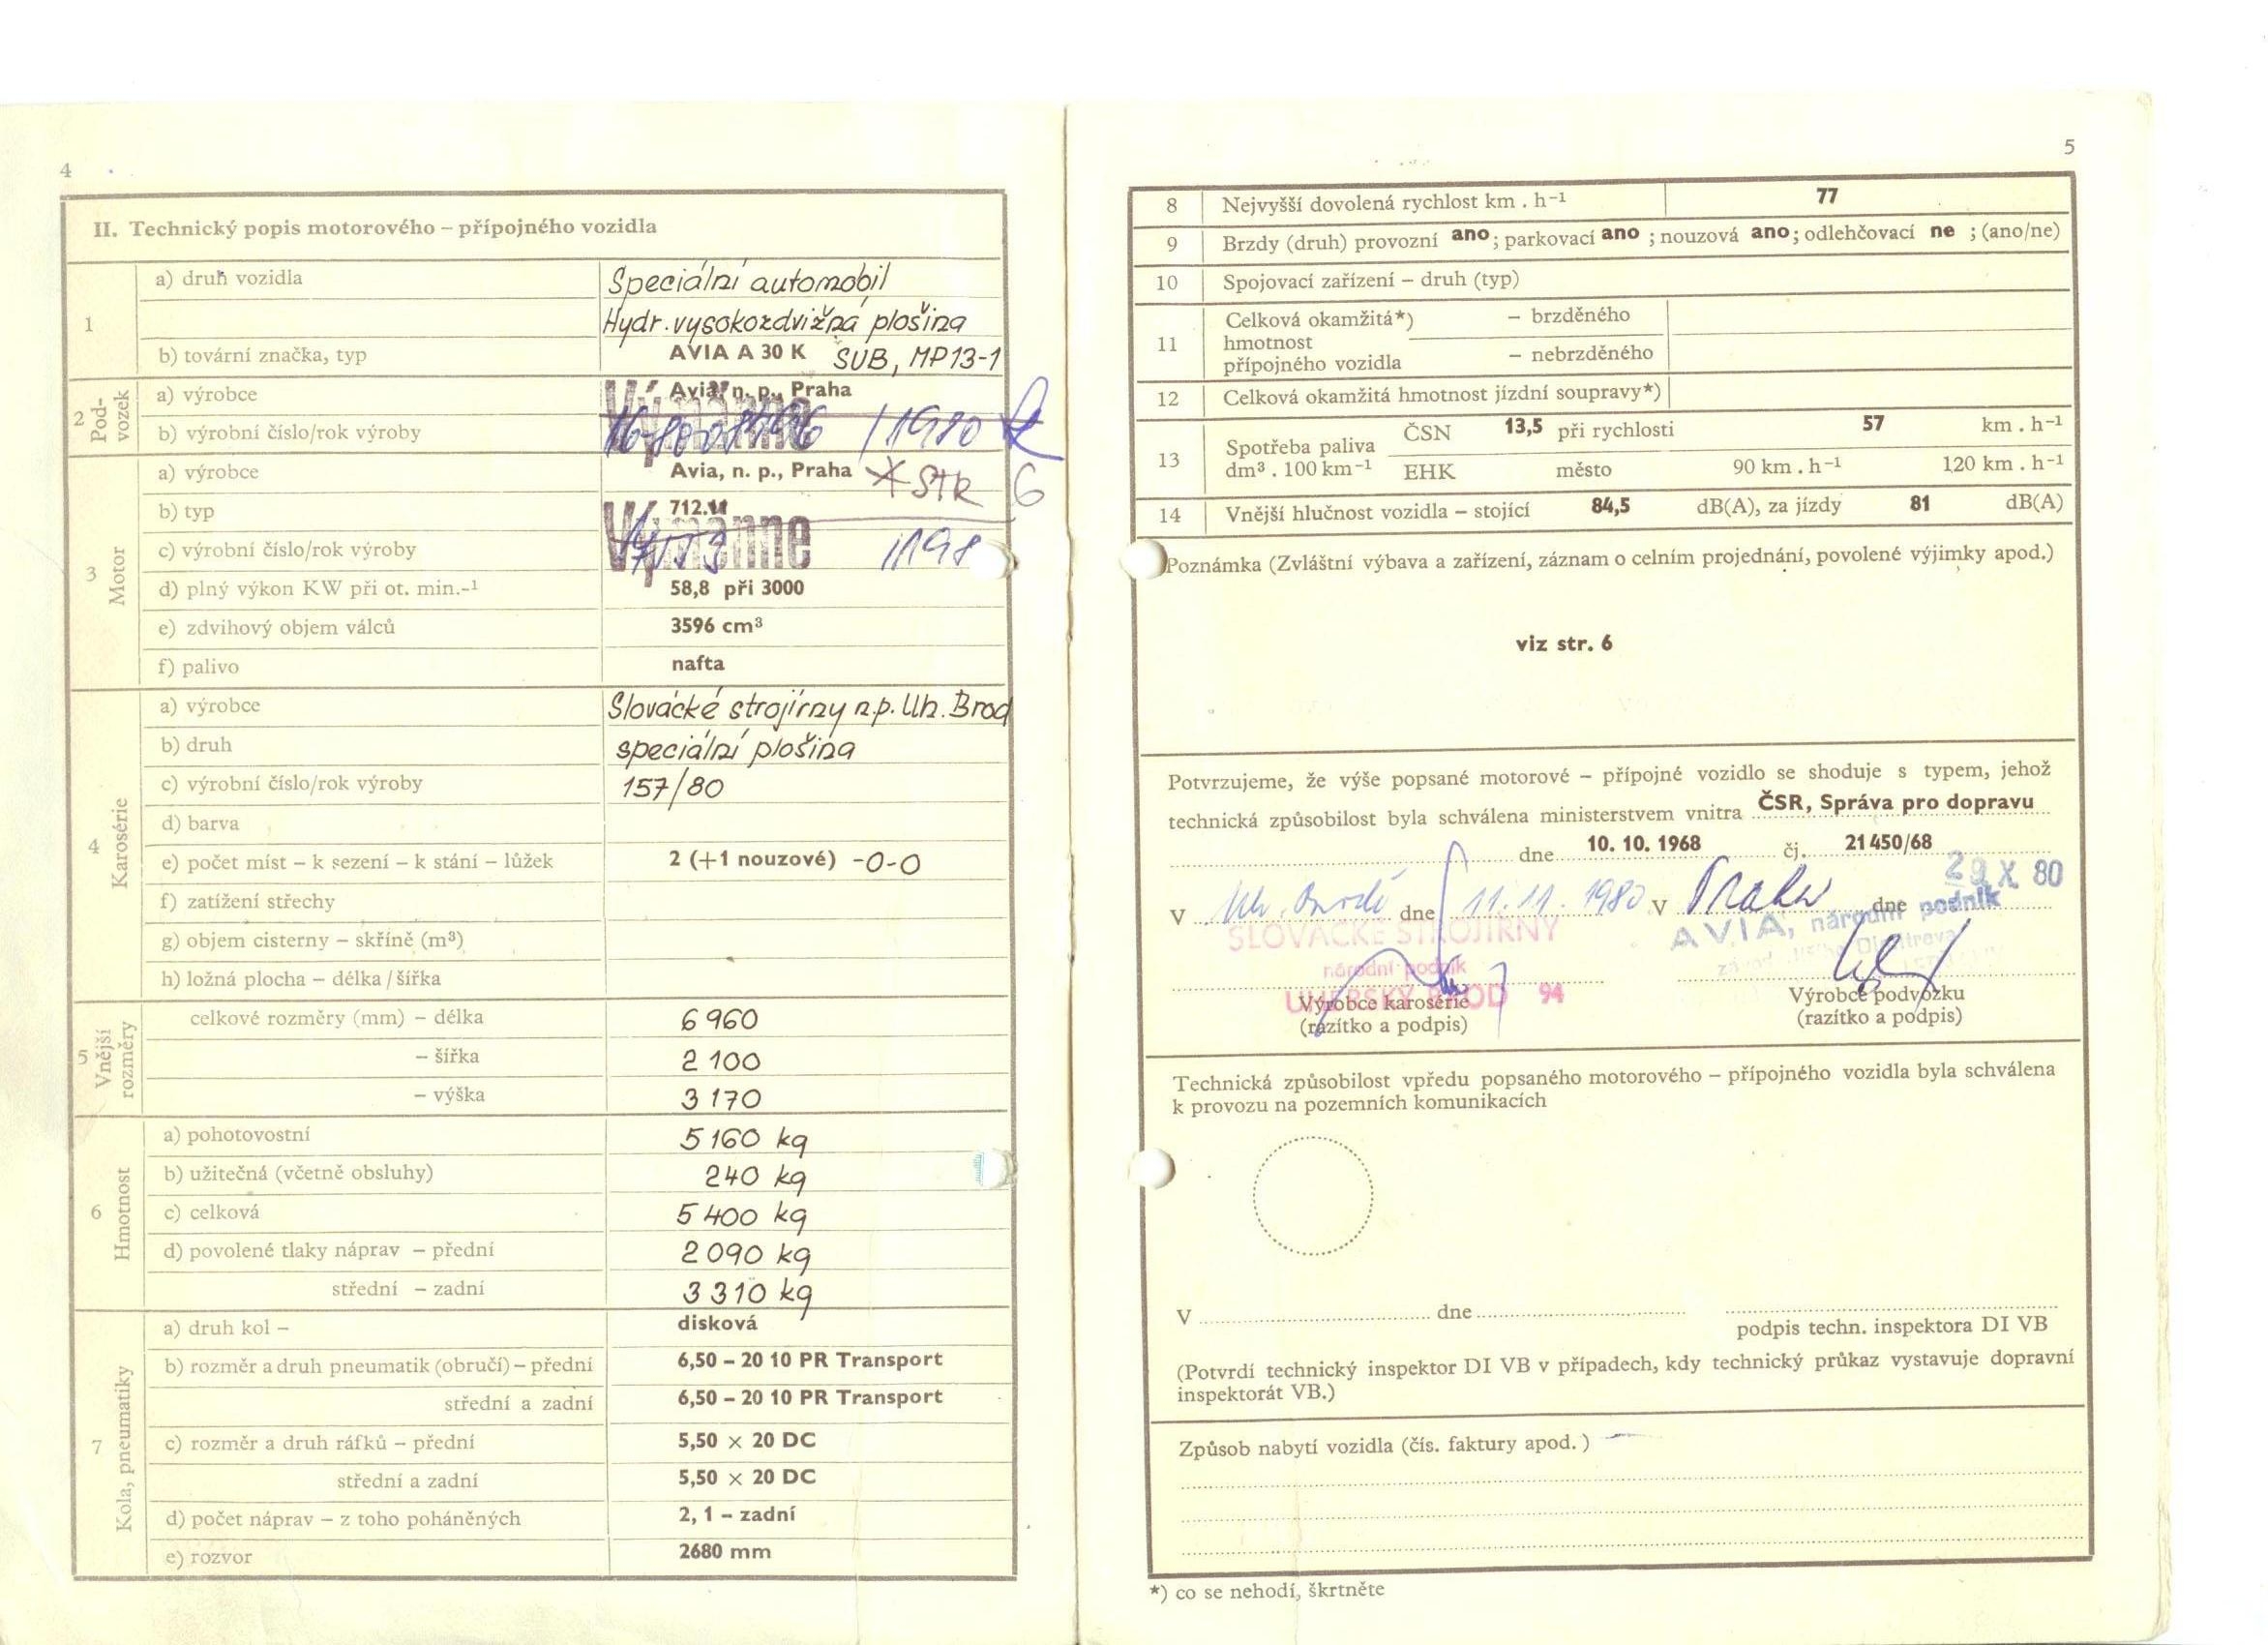 4
II. Technický popis motorového – přípojného vozidla
1 a) druh vozidla Speciální automobil
Hydr. vysokozdvižná plošina
b) tovární značka, typ AVIA A 30 K ŠUB, MP13-1
2 Pod-vozek a) výrobce Avia, n. p., Praha
b) výrobní číslo/rok výroby /1980
Výměnne
3 Motor a) výrobce Avia, n. p., Praha * STR 6
b) typ 712.11
c) výrobní číslo/rok výroby /198
Výměnne
d) plný výkon KW při ot. min.-¹ 58,8 při 3000
e) zdvihový objem válců 3596 cm³
f) palivo nafta
4 Karosérie a) výrobce Slovácké strojírny n.p. Uh. Brod
b) druh speciální plošina
c) výrobní číslo/rok výroby 157/80
d) barva
e) počet míst – k sezení – k stání – lůžek 2 (+1 nouzové) -0-0
f) zatížení střechy
g) objem cisterny – skříně (m³)
h) ložná plocha – délka / šířka
5 Vnější rozměry celkové rozměry (mm) – délka 6 960
– šířka 2 100
– výška 3 170
6 Hmotnost a) pohotovostní 5 160 kg
b) užitečná (včetně obsluhy) 240 kg
c) celková 5 400 kg
d) povolené tlaky náprav – přední 2 090 kg
střední – zadní 3 310 kg
7 Kola, pneumatiky a) druh kol – disková
b) rozměr a druh pneumatik (obručí) – přední 6,50 – 20 10 PR Transport
střední a zadní 6,50 – 20 10 PR Transport
c) rozměr a druh ráfků – přední 5,50 × 20 DC
střední a zadní 5,50 × 20 DC
d) počet náprav – z toho poháněných 2, 1 – zadní
e) rozvor 2680 mm
5
8 Nejvyšší dovolená rychlost km . h⁻¹ 77
9 Brzdy (druh) provozní ano; parkovací ano ; nouzová ano; odlehčovací ne ; (ano/ne)
10 Spojovací zařízení – druh (typ)
11 Celková okamžitá*) – brzděného
hmotnost
přípojného vozidla – nebrzděného
12 Celková okamžitá hmotnost jízdní soupravy*)
13 Spotřeba paliva ČSN 13,5 při rychlosti 57 km . h⁻¹
dm³ . 100 km⁻¹ EHK město 90 km . h⁻¹ 120 km . h⁻¹
14 Vnější hlučnost vozidla – stojící 84,5 dB(A), za jízdy 81 dB(A)
Poznámka (Zvláštní výbava a zařízení, záznam o celním projednání, povolené výjimky apod.)
viz str. 6
Potvrzujeme, že výše popsané motorové – přípojné vozidlo se shoduje s typem, jehož
technická způsobilost byla schválena ministerstvem vnitra ČSR, Správa pro dopravu
dne 10. 10. 1968 čj. 21 450/68
29 X. 80
V Uh. Brodě dne 11.11. 1980 v Praha dne
SLOVÁCKÉ STROJÍRNY
národní podnik
UHERSKÝ BROD 94
AVIA, národní podnik
závod Jiřího Dimitrova
Výrobce karosérie
(razítko a podpis)
Výrobce podvozku
(razítko a podpis)
Technická způsobilost vpředu popsaného motorového – přípojného vozidla byla schválena
k provozu na pozemních komunikacích
V dne
podpis techn. inspektora DI VB
(Potvrdí technický inspektor DI VB v případech, kdy technický průkaz vystavuje dopravní
inspektorát VB.)
Způsob nabytí vozidla (čís. faktury apod. )
*) co se nehodí, škrtněte